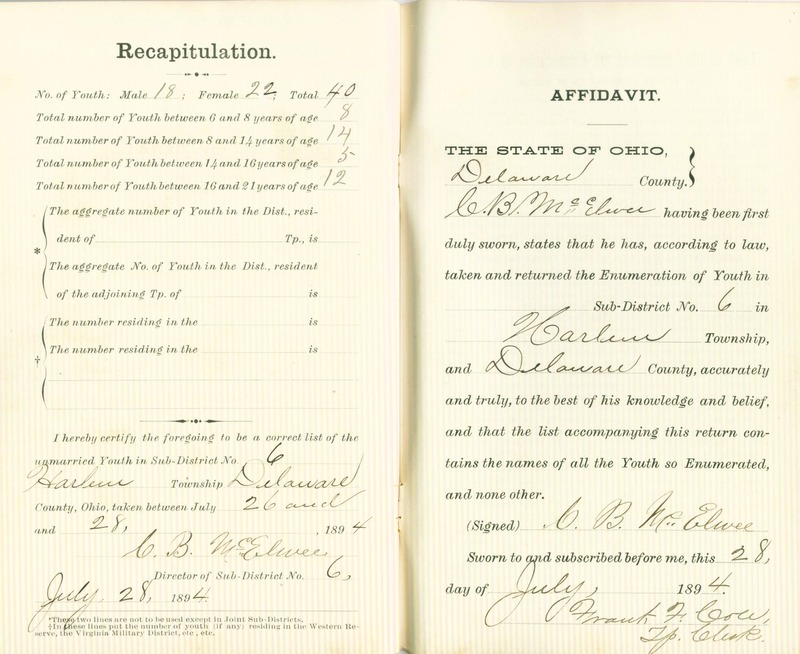 Recapitulation.
No. of Youth: Male 18; Female 22; Total 40
Total number of Youth between 6 and 8 years of age 8
Total number of Youth between 8 and 14 years of age 14
Total number of Youth between 14 and 16 years of age 5
Total number of Youth between 16 and 21 years of age 12
The aggregate number of Youth in the Dist., resi-
dent of Tp., is
*
The aggregate No. of Youth in the Dist., resident
of the adjoining Tp. of is
The number residing in the is
The number residing in the is
†
I hereby certify the foregoing to be a correct list of the
unmarried Youth in Sub-District No. 6
Harlem Township Delaware
County, Ohio, taken between July 26 and
and 28, , 1894
C. B. McElwee
Director of Sub-District No. 6,
July 28, 1894.
*These two lines are not to be used except in Joint Sub-Districts.
†In these lines put the number of youth (if any) residing in the Western Re-
serve, the Virginia Military District, etc., etc.
AFFIDAVIT.
THE STATE OF OHIO,
Delaware County.
C. B. McElwee having been first
duly sworn, states that he has, according to law,
taken and returned the Enumeration of Youth in
Sub-District No. 6 in
Harlem Township,
and Delaware County, accurately
and truly, to the best of his knowledge and belief,
and that the list accompanying this return con-
tains the names of all the Youth so Enumerated,
and none other.
(Signed) C. B. McElwee
Sworn to and subscribed before me, this 28,
day of July, 1894.
Frank F. Cole,
Tp. Clerk.